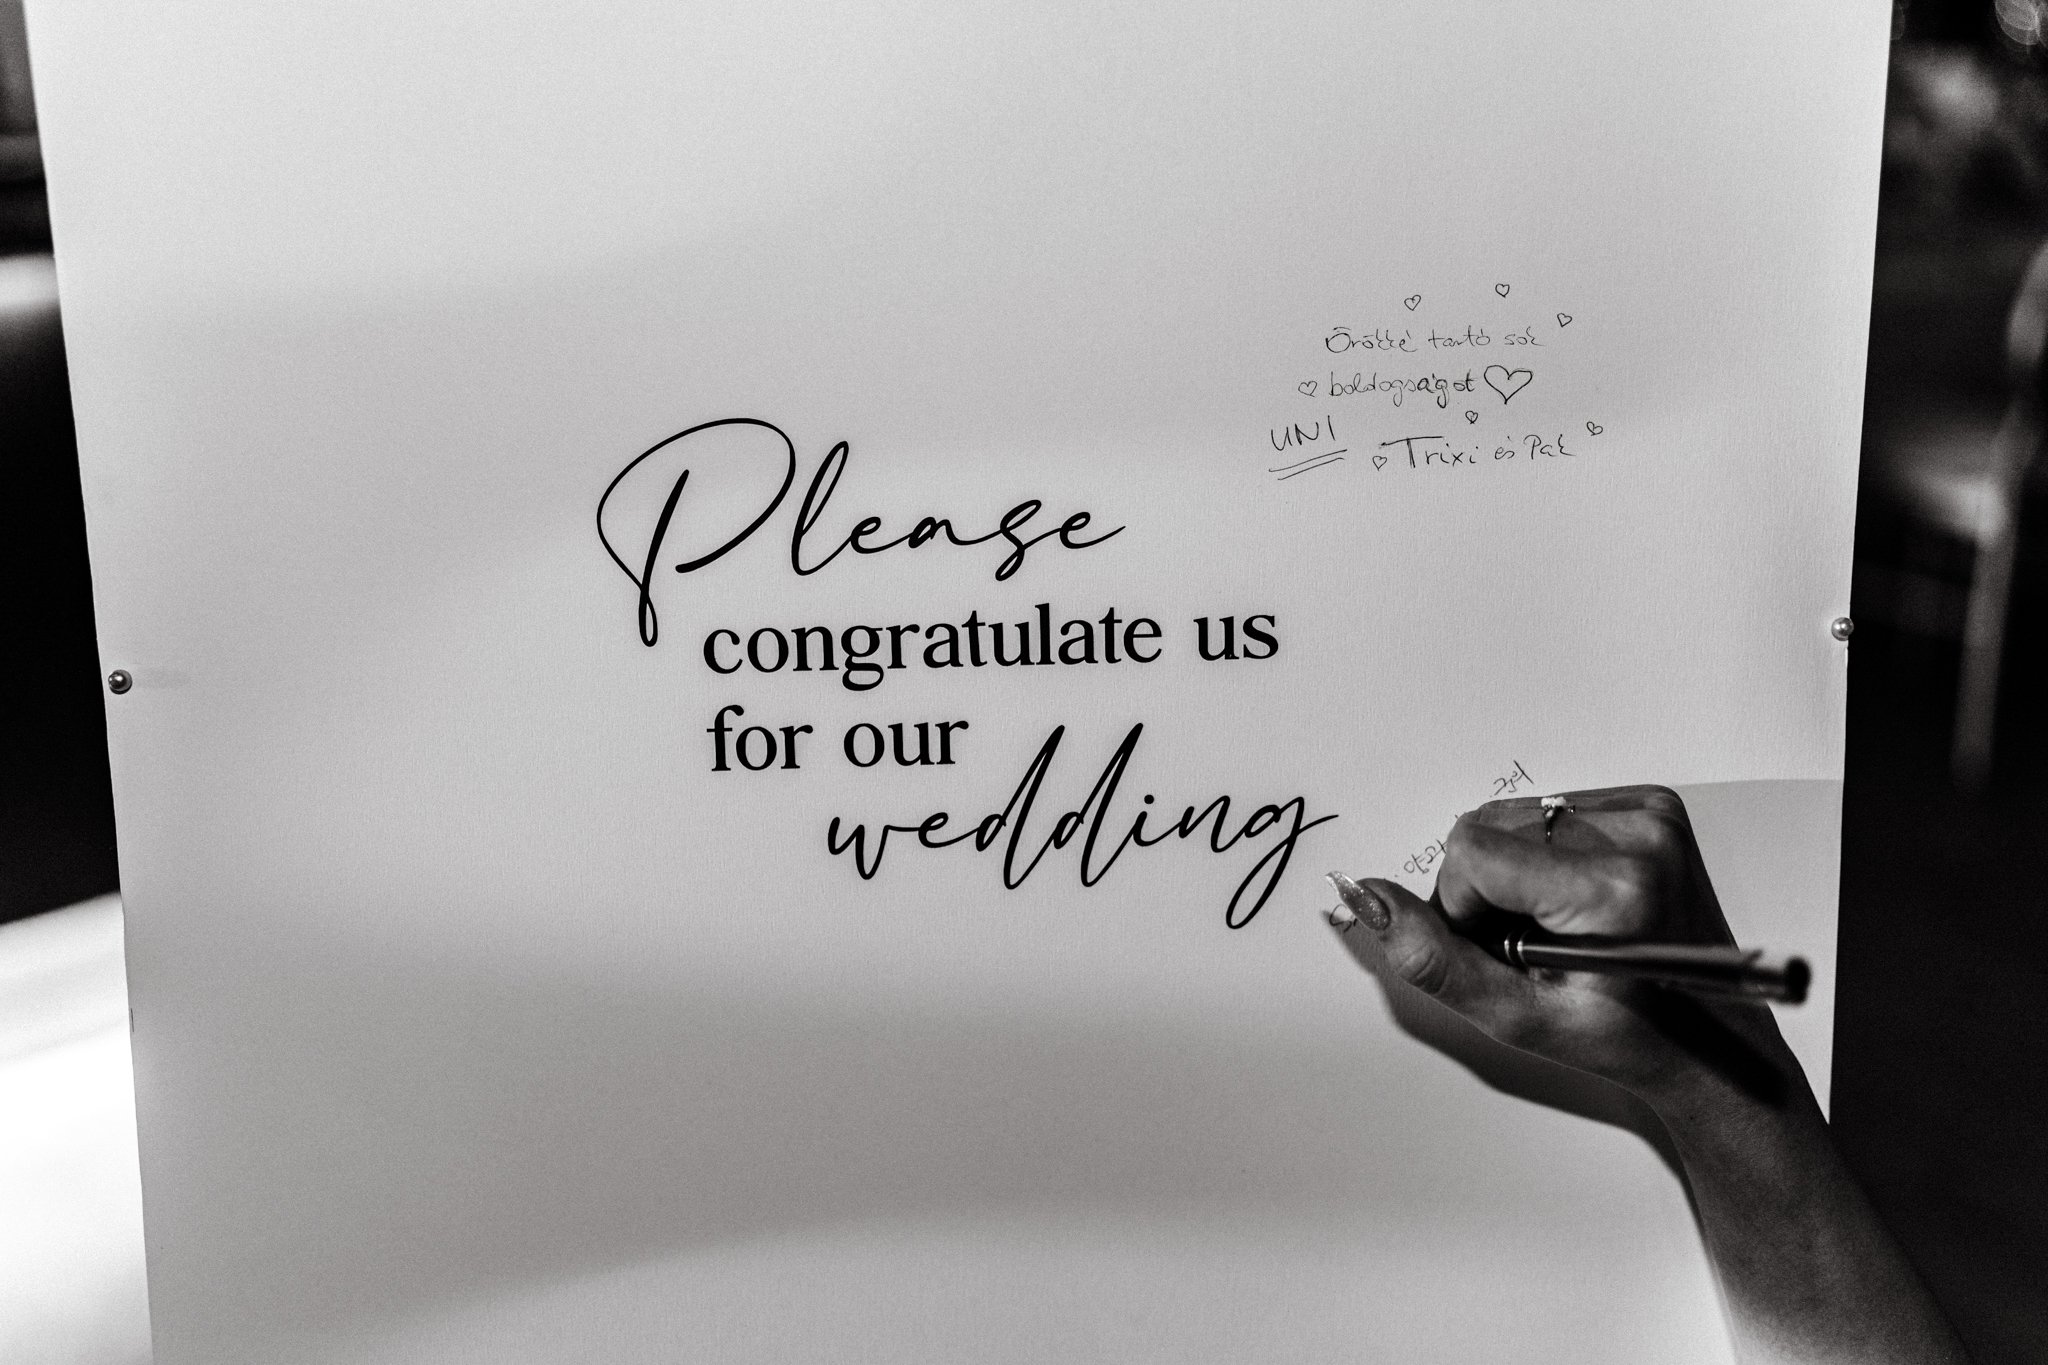 Please
congratulate us
for our
wedding
Örökké tartó sok
boldogságot
UNI
Trixi és Pak